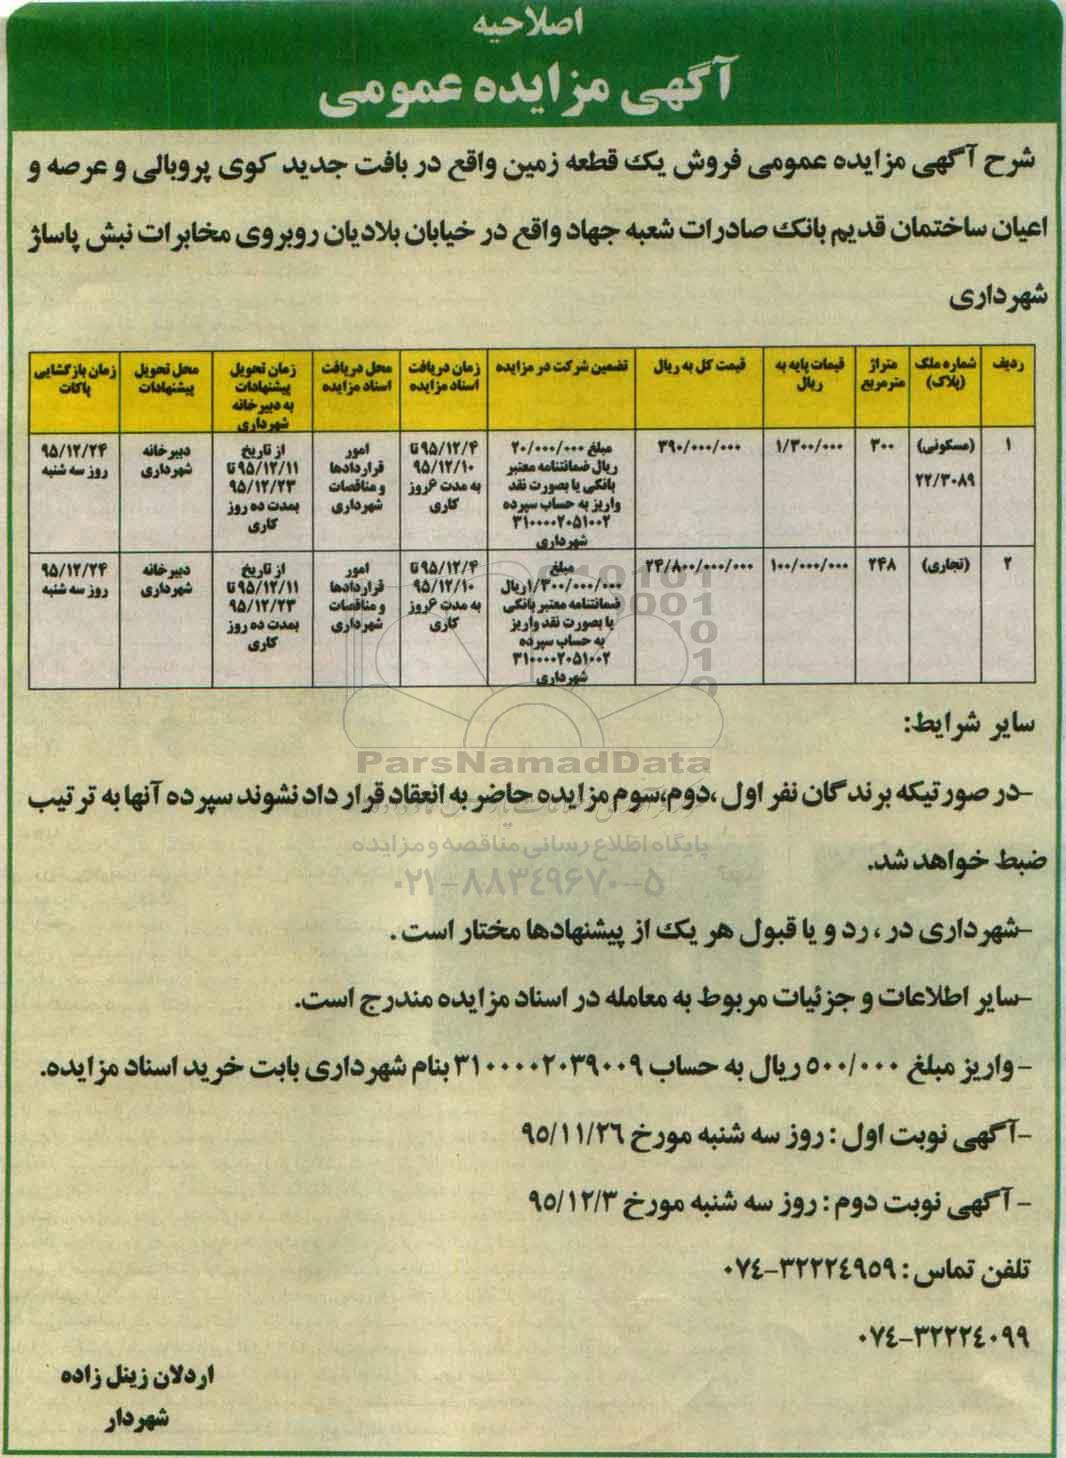 اصلاحیه
آگهی مزایده عمومی
شرح آگهی مزایده عمومی فروش یک قطعه زمین واقع در بافت جدید کوی پروبالی و عرصه و
اعیان ساختمان قدیم بانک صادرات شعبه جهاد واقع در خیابان بلادیان روبروی مخابرات نبش پاساژ
شهرداری
ردیف | شماره ملک (پلاک) | متراژ مترمربع | قیمات پایه به ریال | قیمت کل به ریال | تضمین شرکت در مزایده | زمان دریافت اسناد مزایده | محل دریافت اسناد مزایده | زمان تحویل پیشنهادات به دبیرخانه شهرداری | محل تحویل پیشنهادات | زمان بازگشایی پاکات
۱ | (مسکونی) ۲۲/۳۰۸۹ | ۳۰۰ | ۱/۳۰۰/۰۰۰ | ۳۹۰/۰۰۰/۰۰۰ | مبلغ ۲۰/۰۰۰/۰۰۰ ریال ضمانتنامه معتبر بانکی یا بصورت نقد واریز به حساب سپرده ۳۱۰۰۰۰۲۰۵۱۰۰۲ شهرداری | ۹۵/۱۲/۴ تا ۹۵/۱۲/۱۰ به مدت ۶ روز کاری | امور قراردادها و مناقصات شهرداری | از تاریخ ۹۵/۱۲/۱۱ تا ۹۵/۱۲/۲۳ بمدت ده روز کاری | دبیرخانه شهرداری | ۹۵/۱۲/۲۴ روز سه شنبه
۲ | (تجاری) | ۲۴۸ | ۱۰۰/۰۰۰/۰۰۰ | ۲۴/۸۰۰/۰۰۰/۰۰۰ | مبلغ ۱/۳۰۰/۰۰۰/۰۰۰ریال ضمانتنامه معتبر بانکی یا بصورت نقد واریز به حساب سپرده ۳۱۰۰۰۰۲۰۵۱۰۰۲ شهرداری | ۹۵/۱۲/۴ تا ۹۵/۱۲/۱۰ به مدت ۶ روز کاری | امور قراردادها و مناقصات شهرداری | از تاریخ ۹۵/۱۲/۱۱ تا ۹۵/۱۲/۲۳ بمدت ده روز کاری | دبیرخانه شهرداری | ۹۵/۱۲/۲۴ روز سه شنبه
سایر شرایط:
ParsNamadData
-در صورتیکه برندگان نفر اول ،دوم،سوم مزایده حاضر به انعقاد قرار داد نشوند سپرده آنها به ترتیب
پایگاه اطلاع رسانی مناقصه و مزایده
ضبط خواهد شد.
۰۲۱-۸۸۳۴۹۶۷۰-۵
-شهرداری در ، رد و یا قبول هر یک از پیشنهادها مختار است .
-سایر اطلاعات و جزئیات مربوط به معامله در اسناد مزایده مندرج است.
- واریز مبلغ ۵۰۰/۰۰۰ ریال به حساب ۳۱۰۰۰۰۲۰۳۹۰۰۹ بنام شهرداری بابت خرید اسناد مزایده.
-آگهی نوبت اول : روز سه شنبه مورخ ۹۵/۱۱/۲۶
- آگهی نوبت دوم : روز سه شنبه مورخ ۹۵/۱۲/۳
تلفن تماس : ۳۲۲۲۴۹۵۹-۰۷۴
۳۲۲۲۴۰۹۹-۰۷۴
اردلان زینل زاده
شهردار